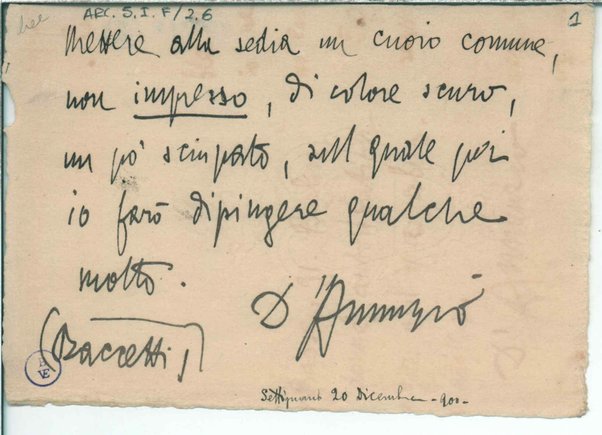 ARC. S. I. F/2.6
1
Mettere alla sedia un cuoio comune,
non impresso, di colore scuro,
un pò sciupato, sul quale poi
io farò dipingere qualche
motto.
D'Annunzio
(Baccetti)
Settignano 20 Dicembre -900-